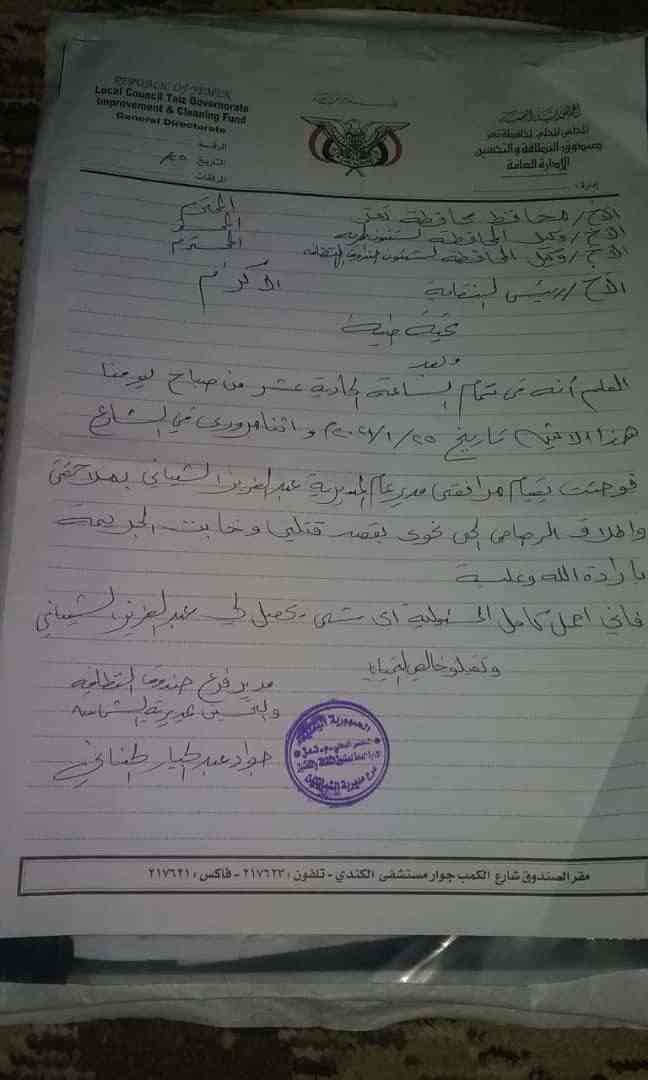 REPUBLIC OF YEMEN
Local Council Taiz Governorate
Improvement & Cleaning Fund
General Directorate
الجمهورية اليمنية
المجلس المحلي لمحافظة تعز
صندوق النظافة والتحسين
الإدارة العامة
الرقم:
التاريخ
المرفقات
إدارة:
الأخ / محافظ محافظة تعز المحترم
الأخ / وكيل المحافظة لشئون المحترم
الأخ / وكيل المحافظة لشئون المحترم
الأخ / رئيس النقابة الأكرام
تحية طيبة
وبعد
العلم أنه في تمام الساعة الحادية عشر من صباح يومنا
هذا الاثنين تاريخ ٢٠٢١/١/٢٥م واثنا مروري في الشارع
فوجئت بقيام مرافقي مدير عام المديرية عبدالعزيز الشيباني بملاحقتي
واطلاق الرصاص الحي نحوي بقصد قتلي وخابت الجريمة
بارادة الله وعليه
فاني احمل كامل المسئولية اي شي يحصل لي عبدالعزيز الشيباني
وتقبلو خالص التحيات
مدير فرع صندوق النظافة
والتحسين مديرية الشمايتين
جواد عبدالجبار
الجمهورية اليمنية
فرع مديرية الشمايتين
مقر الصندوق شارع الكمب جوار مستشفى الكندي - تلفون : ٢١٧٦٢٣ - فاكس : ٢١٧٦٢١